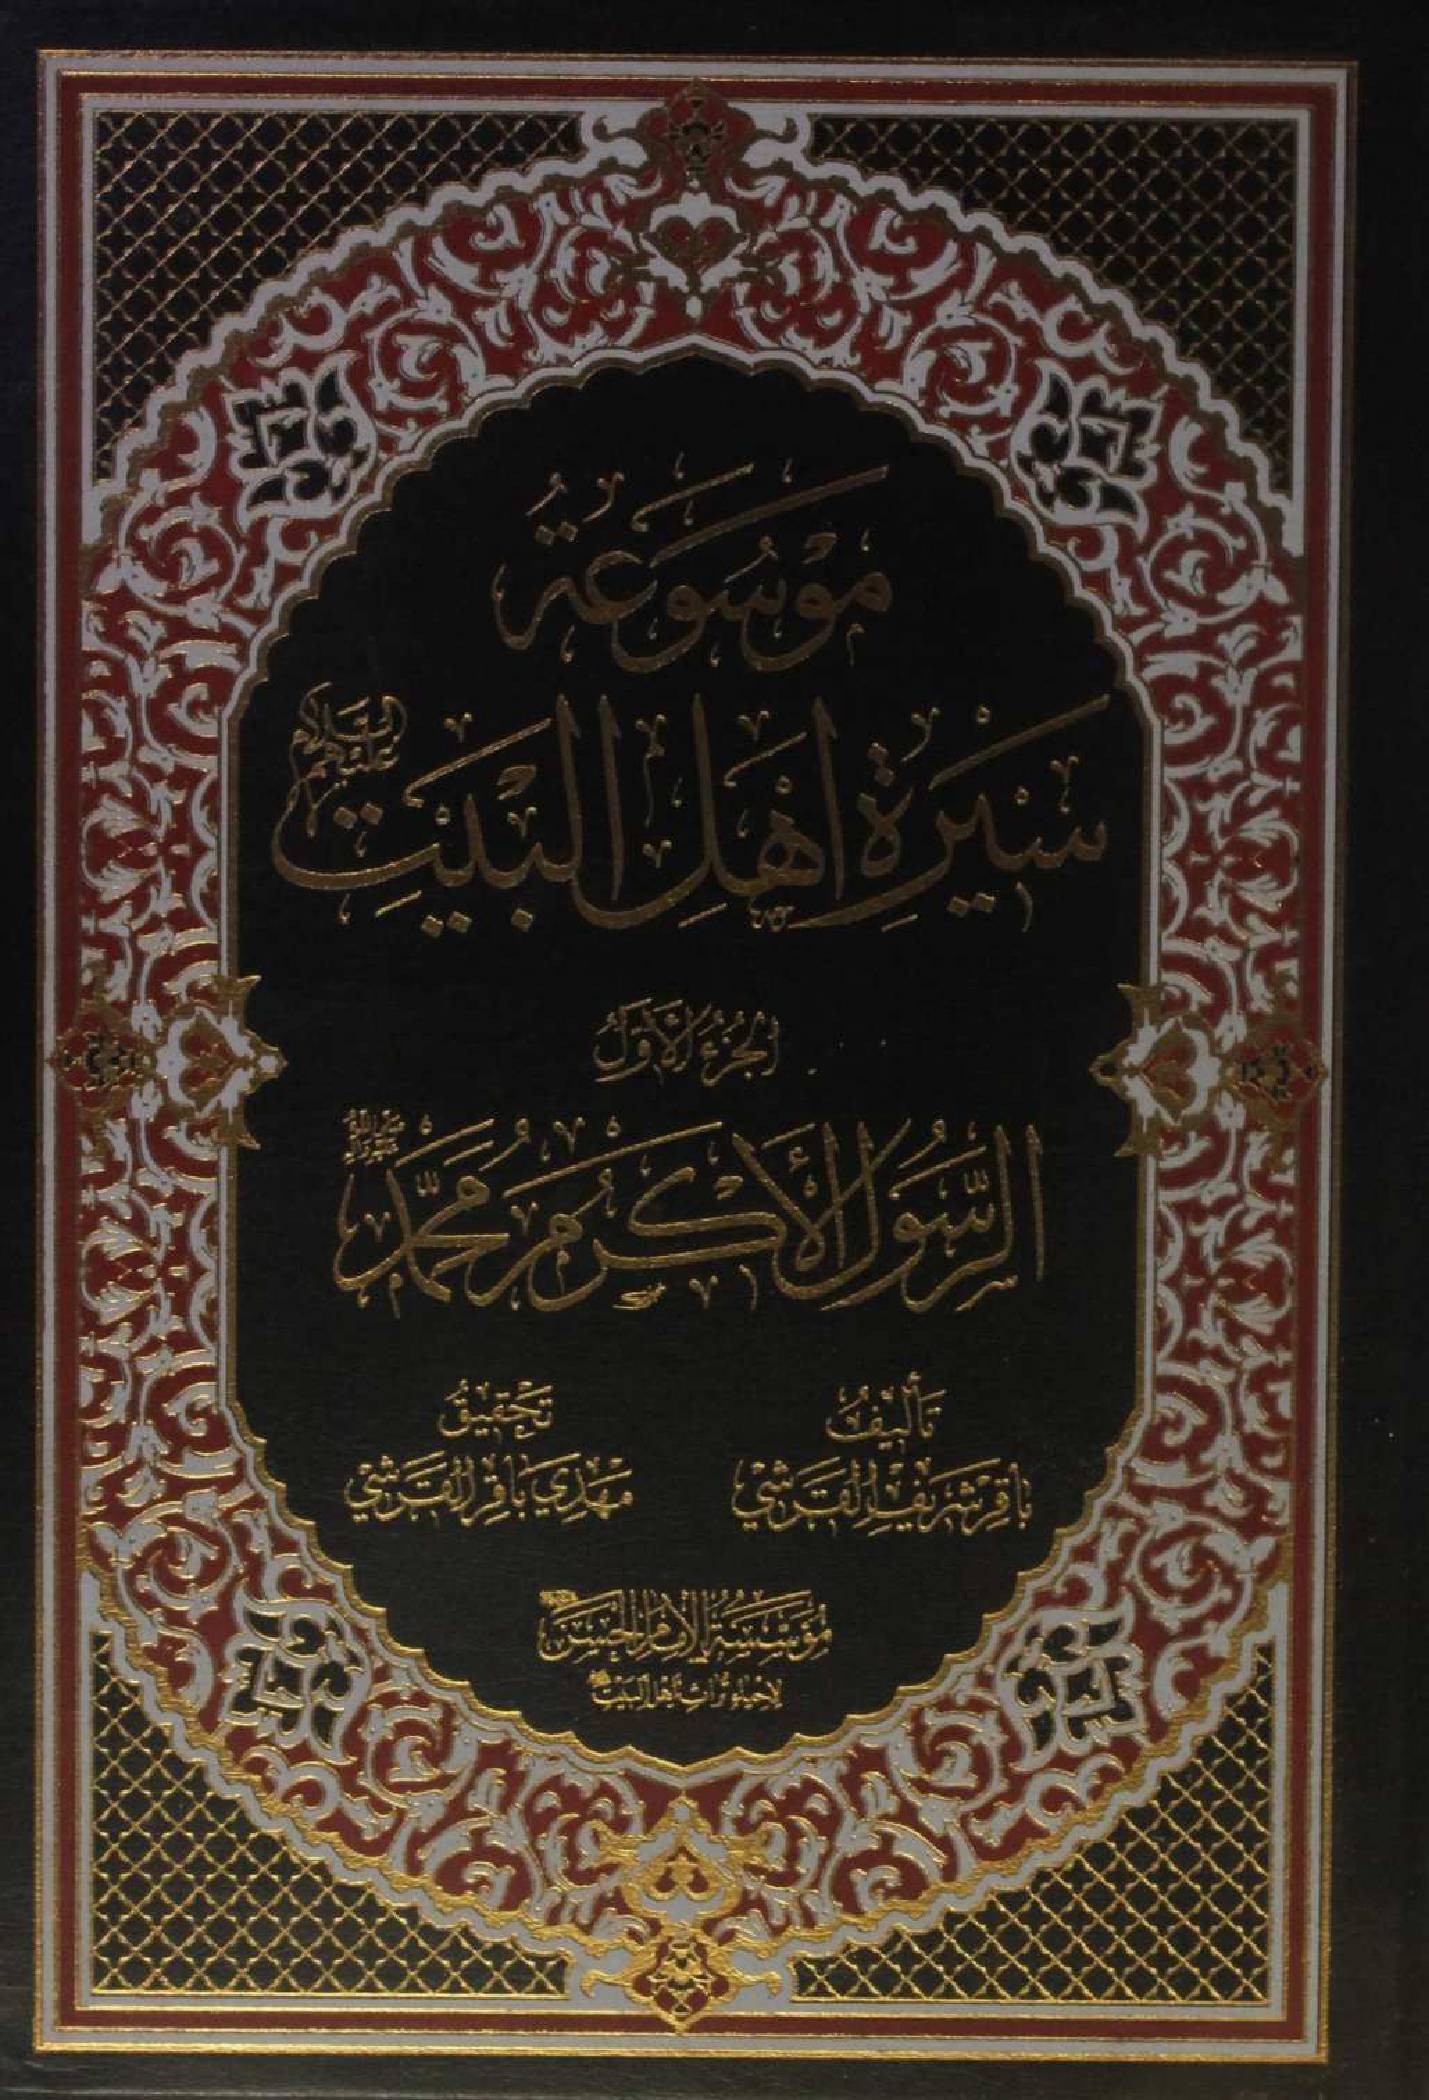 مَوْسُوعَةُ
سِيرَةِ أَهْلِ الْبَيْتِ عَلَيْهِمُ السَّلَام
الجُزْءُ الأَوَّلُ
الرَّسُولُ الأَكْرَمُ مُحَمَّد
تَأْلِيفُ
بَاقِر شَرِيف القَرَشِي
تَحْقِيقُ
مَهْدِي بَاقِر القَرَشِي
مُؤَسَّسَةُ الإِمَامِ الحَسَن
لإحياء تراث أهل البيت